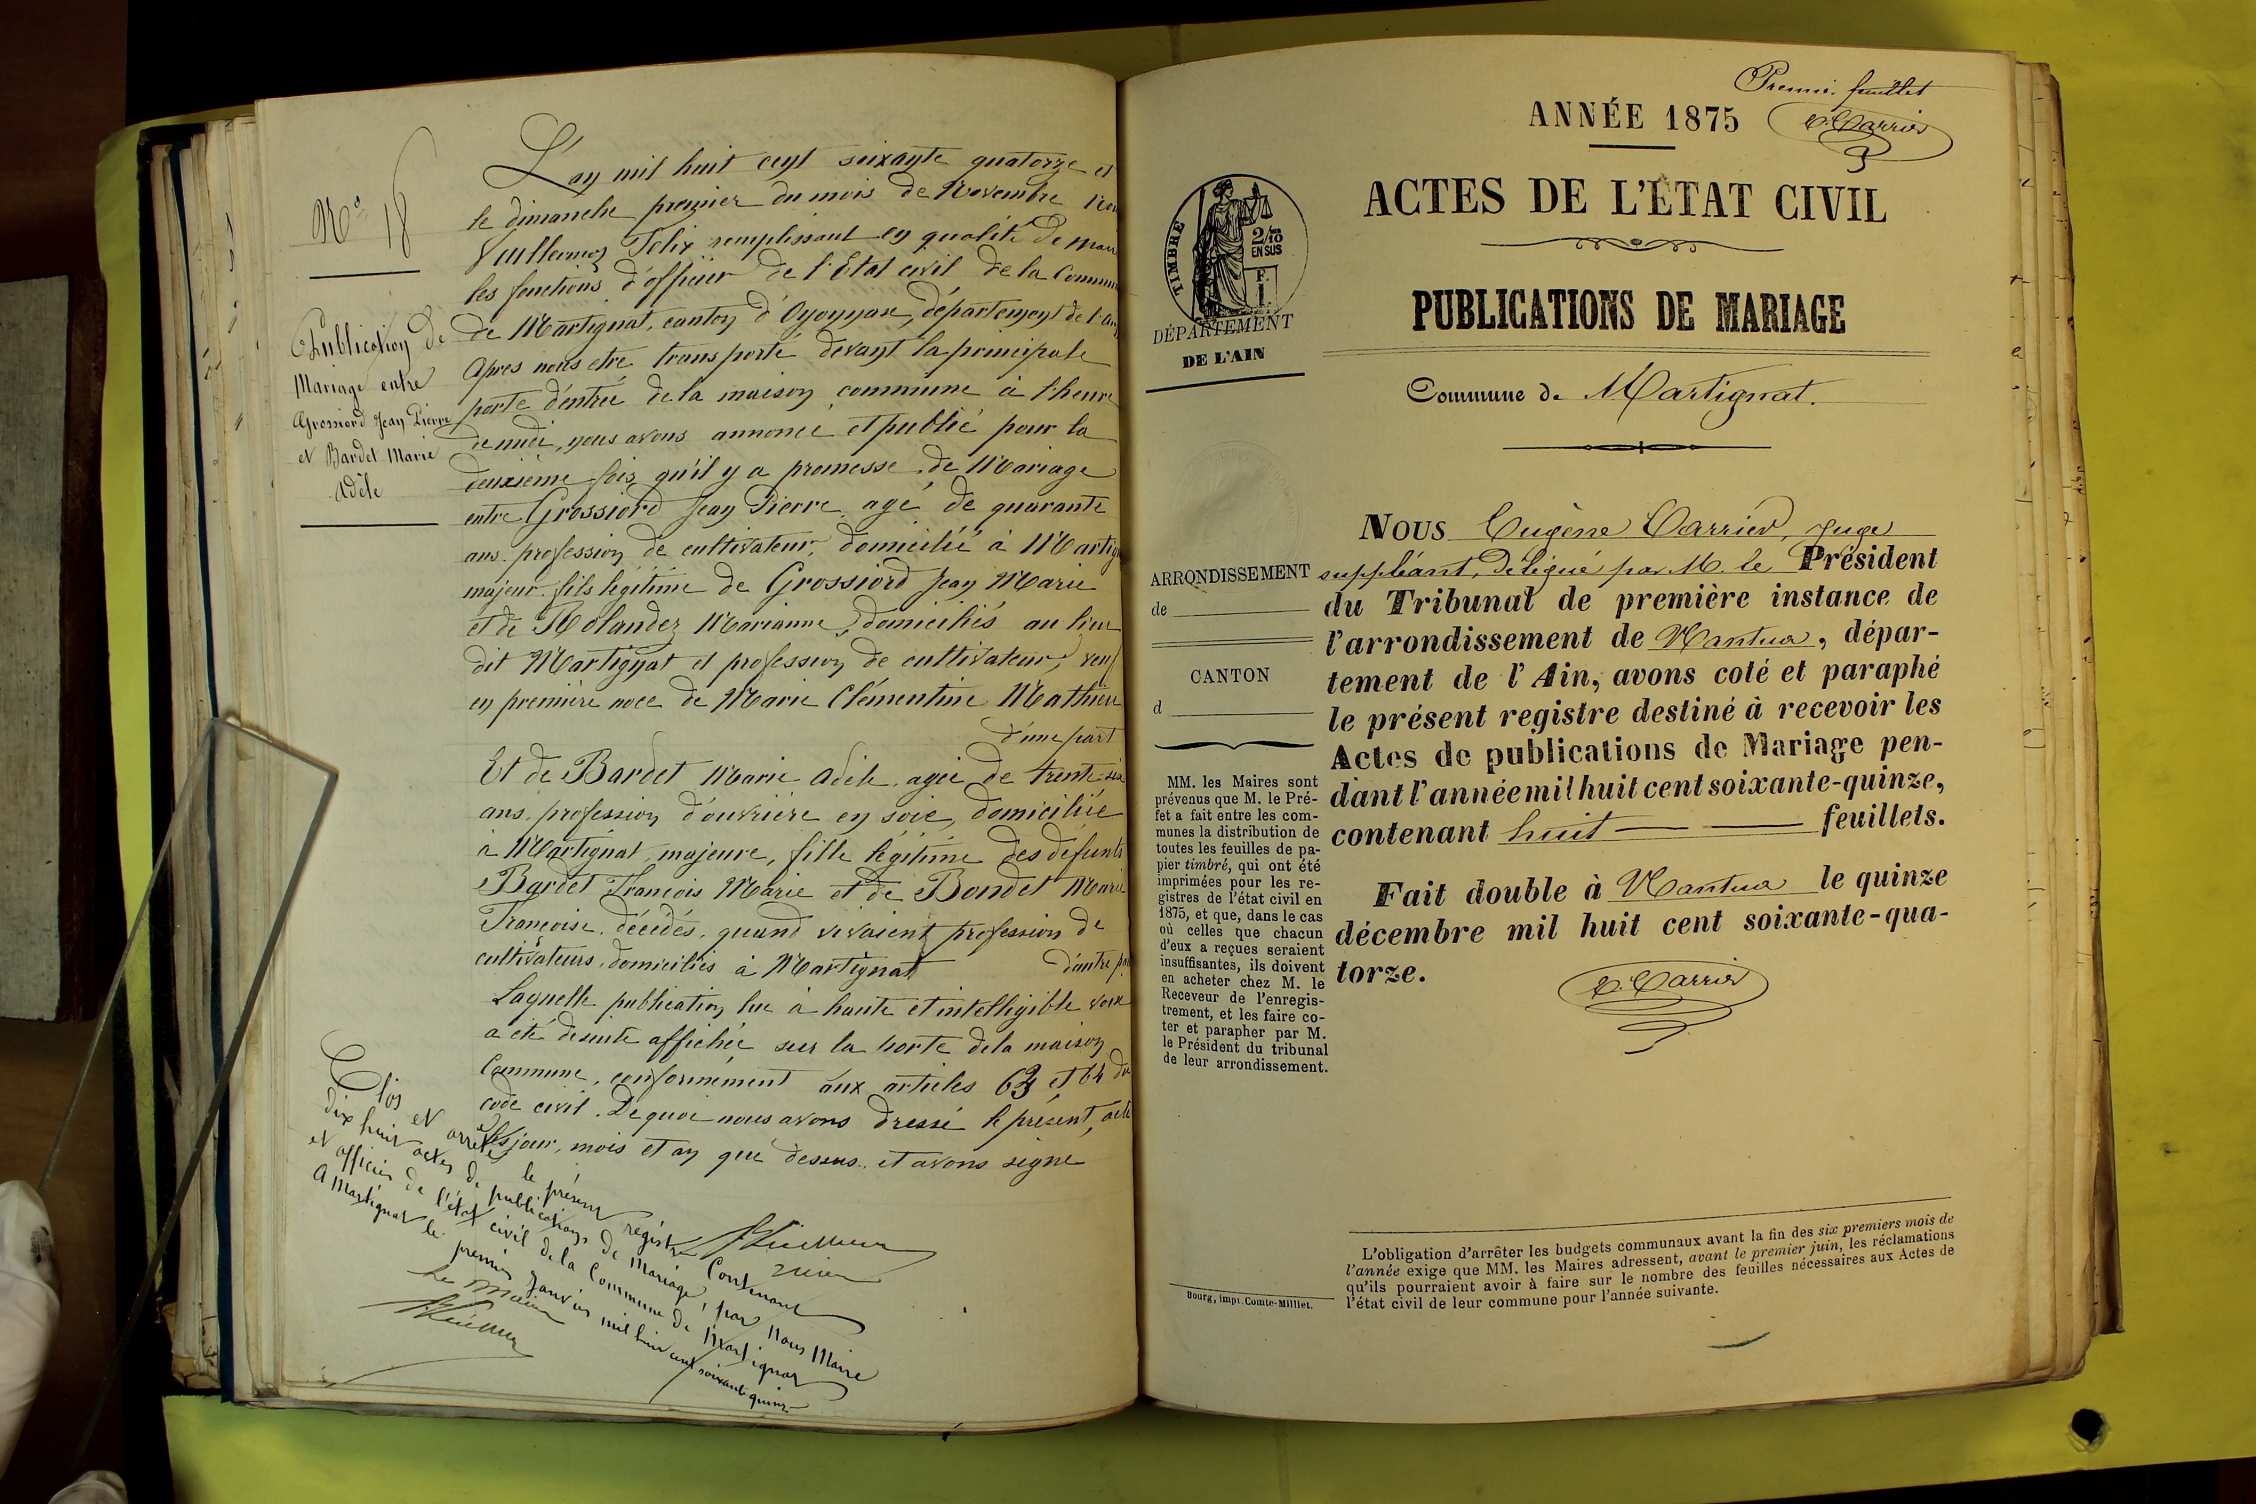 N° 18
Publication de
Mariage entre
Grossiord Jean Pierre
et Bardet Marie
Adèle
L'an mil huit cent soixante quatorze et
le dimanche premier du mois de Novembre Nous
Vuillermoz Félix remplissant en qualité de Maire
les fonctions d'officier de l'Etat civil de la Commune
de Martignat, canton d'Oyonnax, département de l'Ain
Après nous etre transporté devant la principale
porte d'entrée de la maison commune à l'heure
de midi, nous avons annoncé et publié pour la
deuxième fois qu'il y a promesse de Mariage
entre Grossiord Jean Pierre agé de quarante
ans, profession de cultivateur, domicilié à Martignat
majeur fils légitime de Grossiord Jean Marie
et de Rolandez Marianne, domiciliés au lieu
dit Martignat et profession de cultivateur, veuf
en première noce de Marie Clémentine Mathieu
d'une part
Et de Bardet Marie Adèle, agée de trente six
ans, profession d'ouvrière en soie, domiciliée
à Martignat, majeure, fille légitime des défunts
Bardet François Marie et de Bondet Marie
Françoise, décédés, quand vivaient profession de
cultivateurs, domiciliés à Martignat d'autre part
Laquelle publication lue à haute et intelligible voix
a été desuite affichée sur la porte de la maison
Commune, conformément aux articles 63 et 64 du
code civil. De quoi nous avons dressé le présent acte
les jour, mois et an que dessus, et avons signé
Clos et arrêté le présent registre Contenant
dix huit actes de publications de Mariage, par Nous Maire
et officier de l'état civil de la Commune de Martignat
A Martignat le premier Janvier mil huit cent soixante quinze
Le Maire
Premier feuillet
E. Carrier
ANNÉE 1875
ACTES DE L'ÉTAT CIVIL
PUBLICATIONS DE MARIAGE
TIMBRE
2/10 EN SUS
F. 1
DÉPARTEMENT
DE L'AIN
Commune de Martignat.
ARRONDISSEMENT
de
CANTON
d
MM. les Maires sont
prévenus que M. le Pré-
fet a fait entre les com-
munes la distribution de
toutes les feuilles de pa-
pier timbré, qui ont été
imprimées pour les re-
gistres de l'état civil en
1875, et que, dans le cas
où celles que chacun
d'eux a reçues seraient
insuffisantes, ils doivent
en acheter chez M. le
Receveur de l'enregis-
trement, et les faire co-
ter et parapher par M.
le Président du tribunal
de leur arrondissement.
Nous Eugène Carrier, Juge
suppléant, délégué par M. le Président
du Tribunal de première instance de
l'arrondissement de Nantua, dépar-
tement de l'Ain, avons coté et paraphé
le présent registre destiné à recevoir les
Actes de publications de Mariage pen-
dant l'année mil huit cent soixante-quinze,
contenant huit feuillets.
Fait double à Nantua le quinze
décembre mil huit cent soixante-qua-
torze.
E. Carrier
L'obligation d'arrêter les budgets communaux avant la fin des six premiers mois de
l'année exige que MM. les Maires adressent, avant le premier juin, les réclamations
qu'ils pourraient avoir à faire sur le nombre des feuilles nécessaires aux Actes de
l'état civil de leur commune pour l'année suivante.
Bourg, impr. Comte-Milliet.